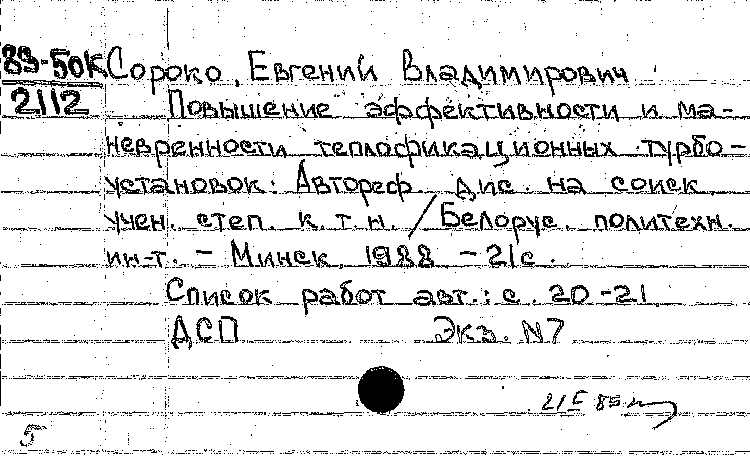 89-50к Сороко, Евгений Владимирович
2112 Повышение эффективности и ма-
невренности теплофикационных турбо-
установок: Автореф. дис. на соиск.
учен. степ. к.т.н. / Белорус. политехн.
ин-т. - Минск, 1988 - 21с.
Список работ авт.: с. 20-21
ДСП Экз. N7
5